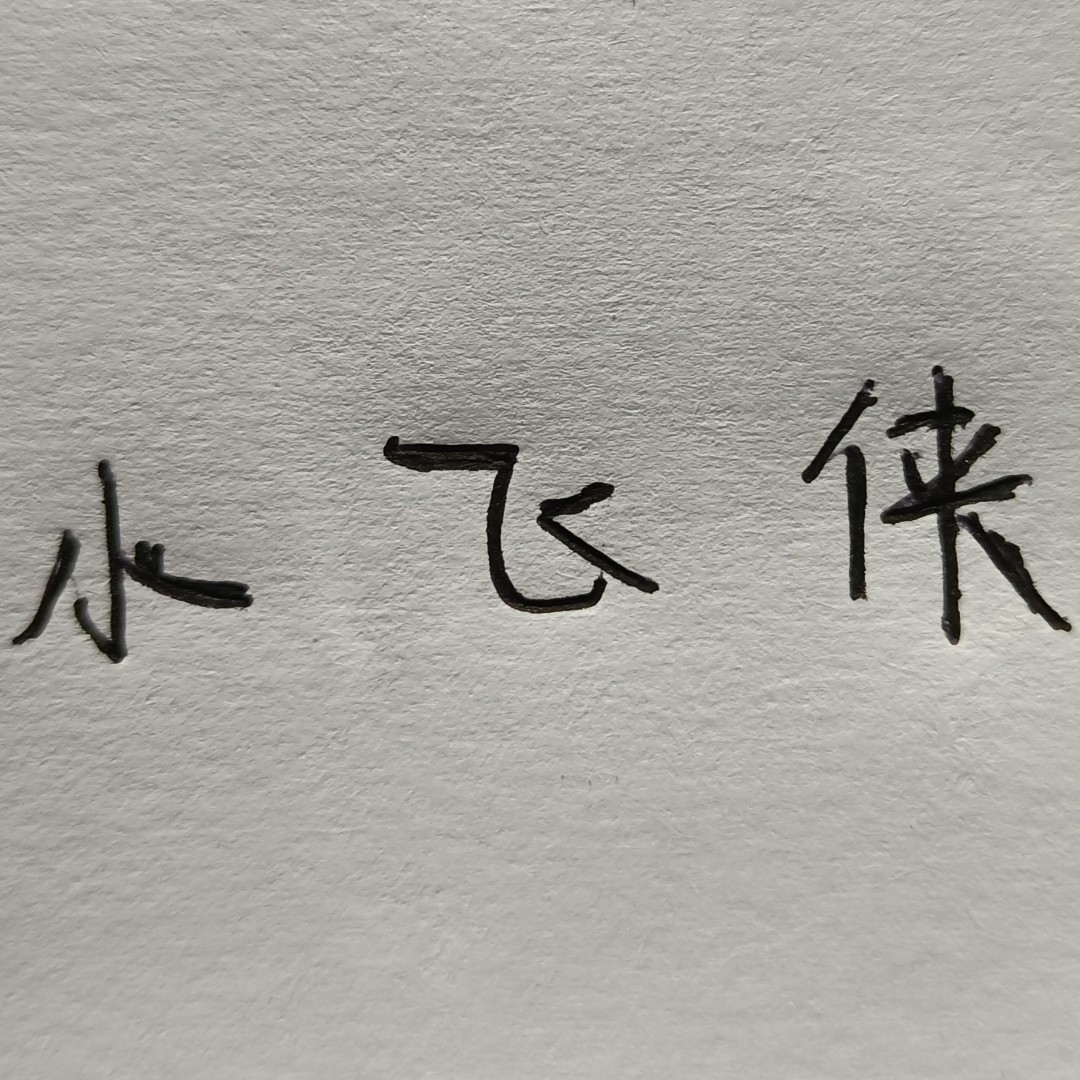 小飞侠